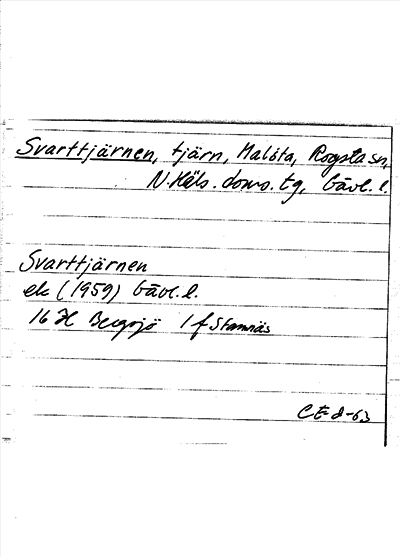 Svarttjärnen, tjärn, Malsta, Rogsta sn,
N. Häls. doms. tg, Gävl. l.
Svarttjärnen
ek (1959) Gävl. l.
16 H Bergsjö 1 f Stamnäs
CE-d-63